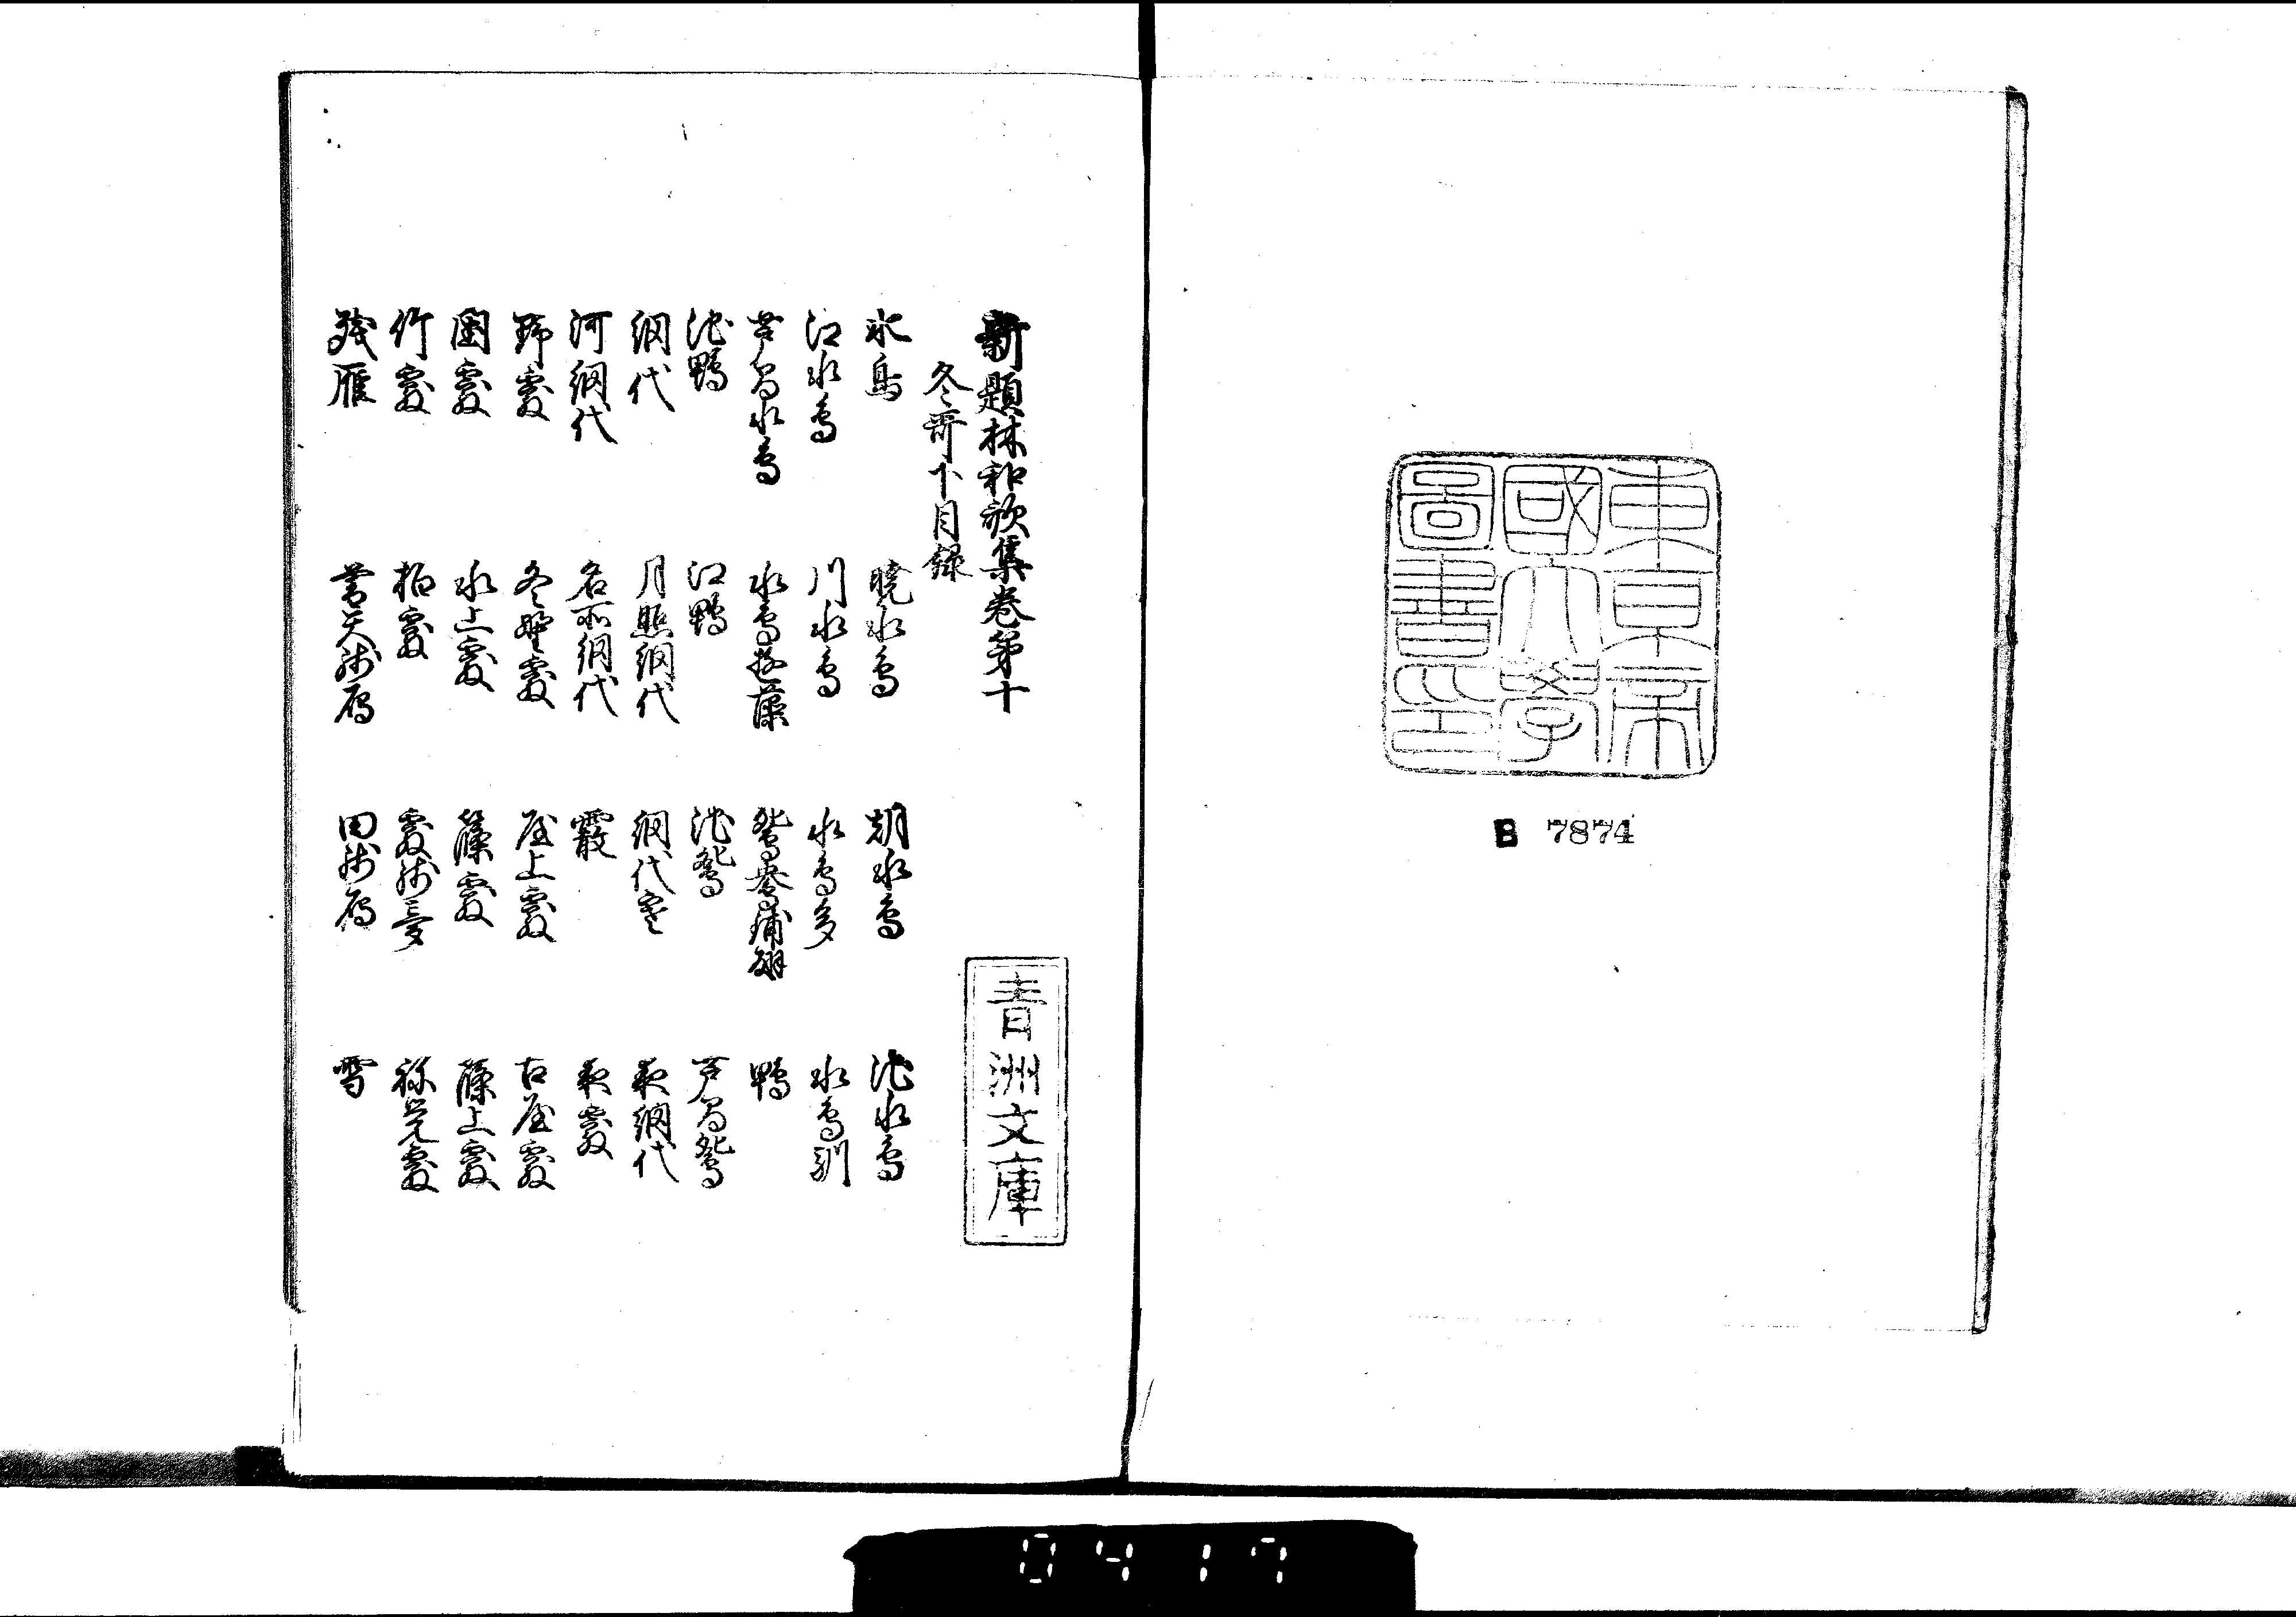 東京帝
國大學
圖書印
B 7874
新題林和歌集巻第十
冬哥下目録
水鳥　暁水鳥　朝水鳥　池水鳥
江水鳥　川水鳥　水鳥多　水鳥馴
芦間水鳥　水鳥遊藻　鴛鴦　鴨
池鴨　江鴨　池鴛　芦間鴛
網代　月照網代　網代寒　夜網代
河網代　名所網代　霰　夜霰
野霰　冬野霰　屋上霰　古屋霰
園霰　水上霰　篠霰　篠上霰
竹霰　柏霰　霰残夢　祢覚霰
残雁　暮天残鴈　田残鴈　雪
青洲文庫
0417